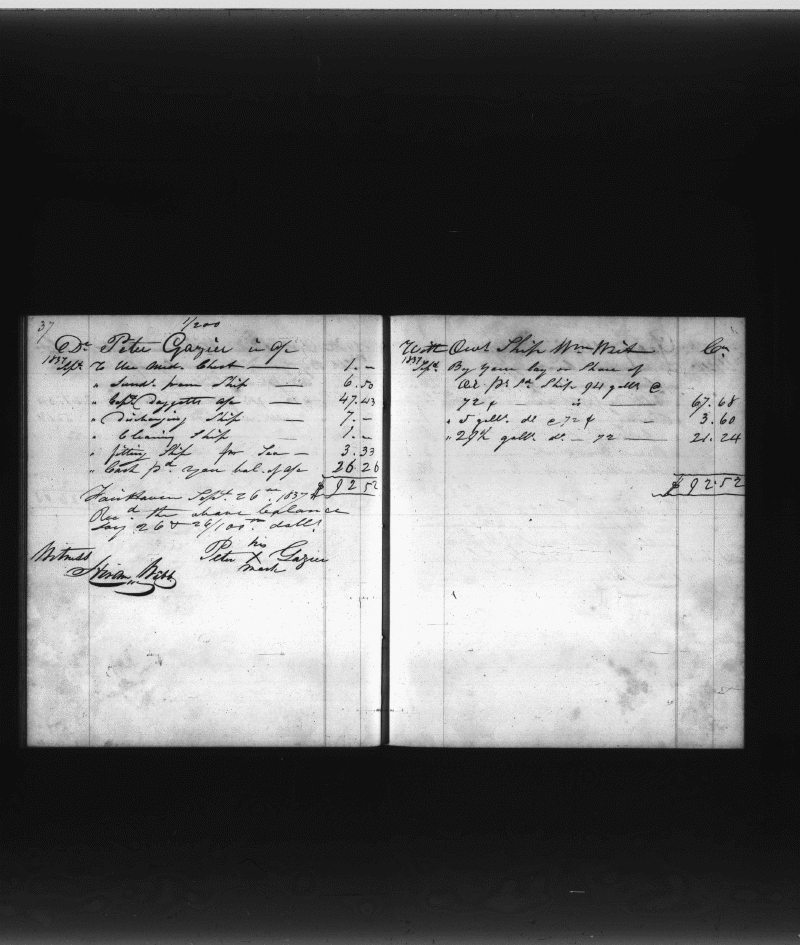 37
1/200
Dr Peter Gazier in a/c
1837
Sept. To Use Med. Chest 1.-
" Sund. from Ship 6.50
" Capt. Daggetts a/c 47.43
" Discharging Ship 7.-
" Cleaning Ship 1.-
" fitting Ship for Sea 3.33
" Cash pd. your bal. of a/c 26 26
Fairhaven Sept. 26th. 1837 $ 92 52
Recd the above balance
Say 26 & 26/100ths dolls
Witness
his
Peter X Gazier
mark
Hiram Webb
With Ship Wm Cr
1837
Sept. By Your lay or Share of
pr. Sd Ship 94 galls @
72 ¢ is 67.68
" 5 galls. do @ 72 ¢ 3.60
" 29½ galls. do. - 72 21.24
$ 92.52